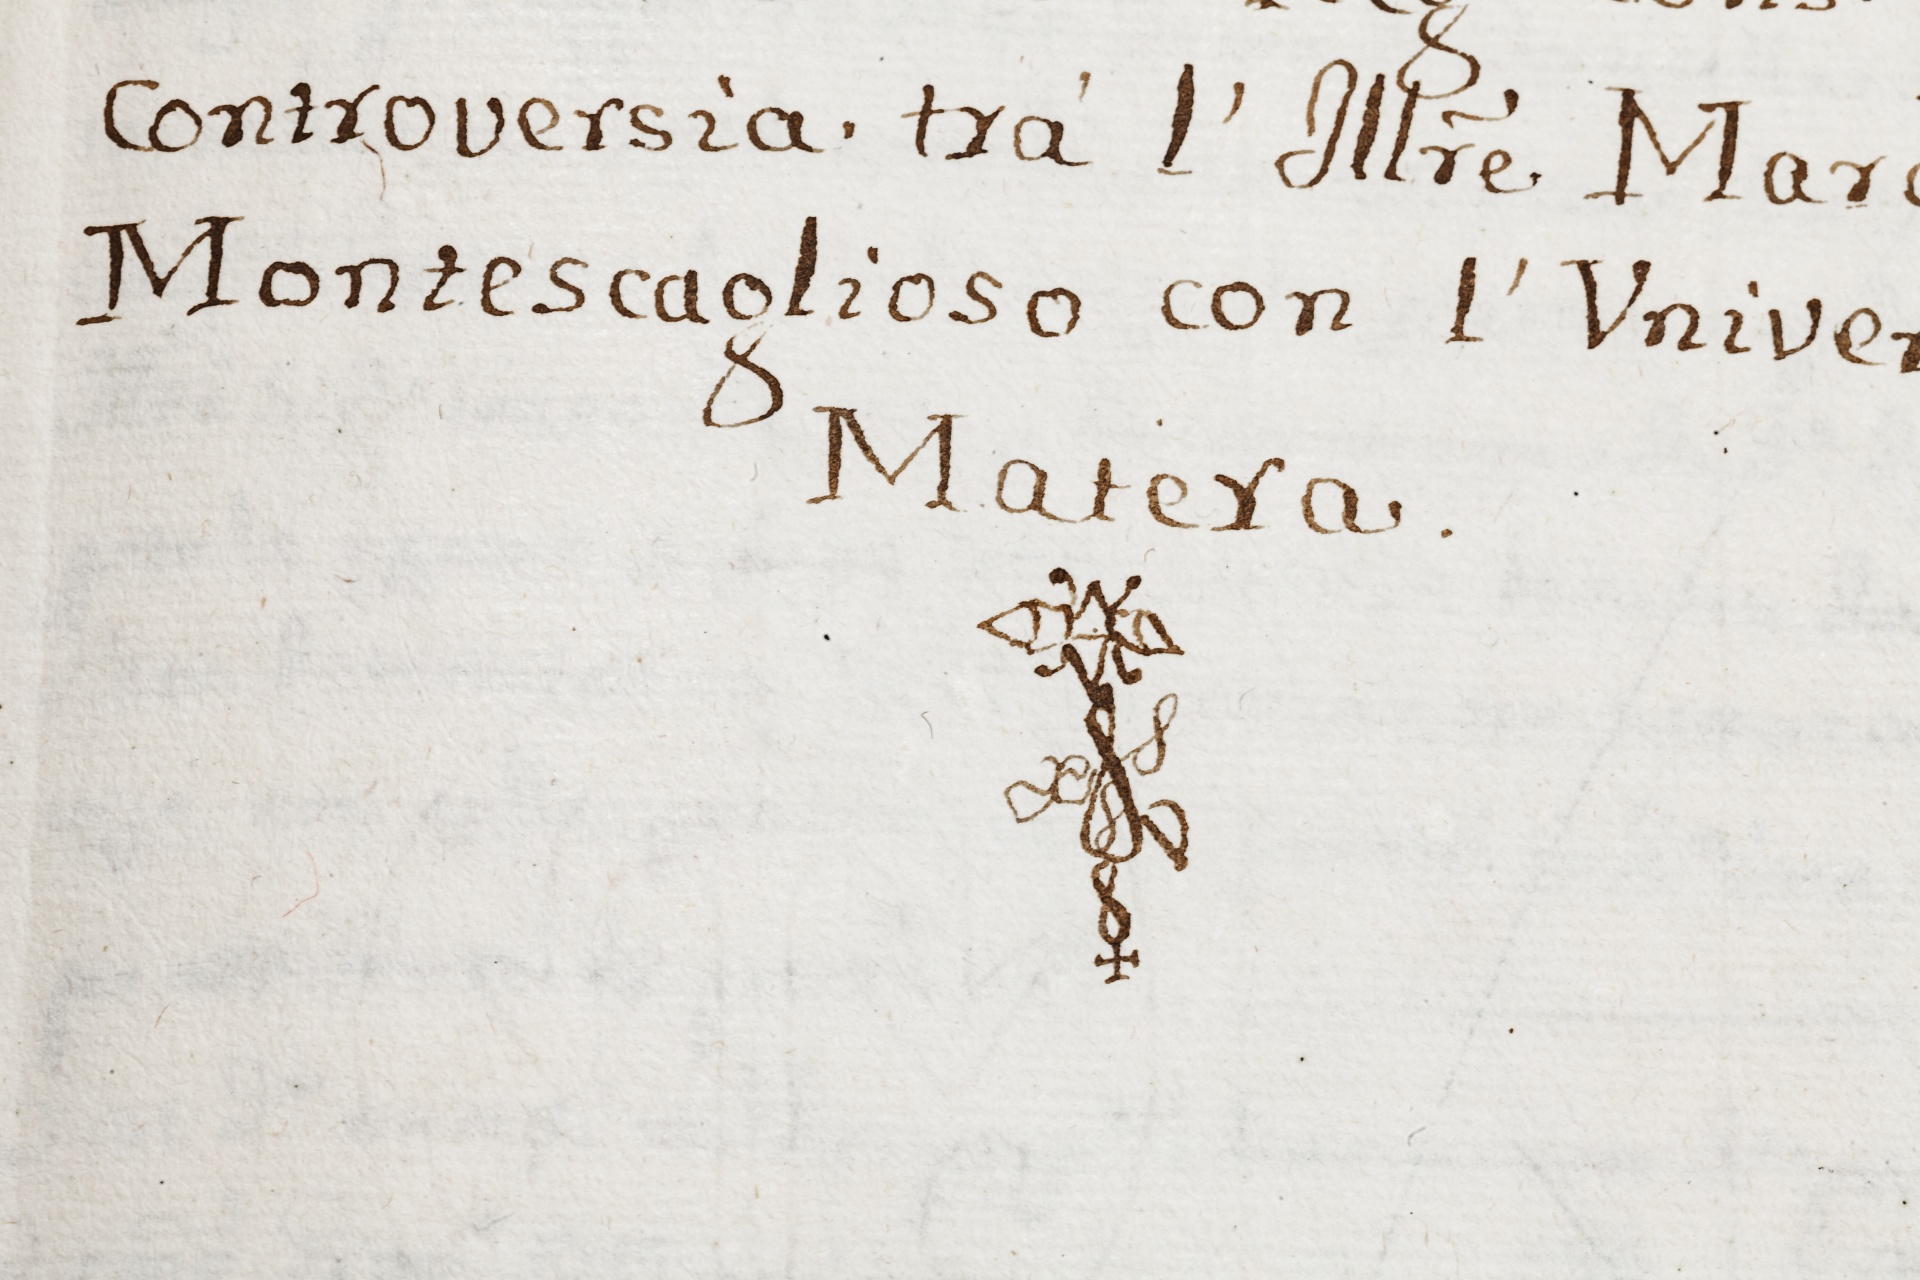 Controversia. trà l' Illrẽ Marc
Montescaglioso con l' Vniver
Matera.